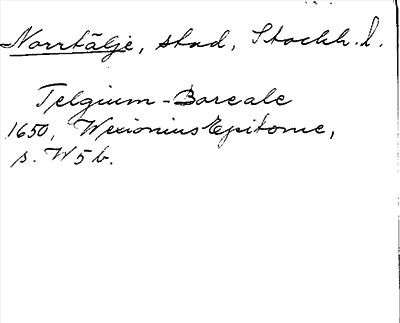 Norrtälje, stad, Stockh. l.
Telgium-Boreale
1650, Wexionius Epitome,
s. W5b.